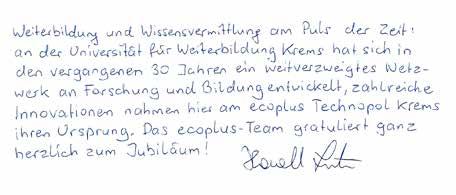 Weiterbildung und Wissensvermittlung am Puls der Zeit:
an der Universität für Weiterbildung Krems hat sich in
den vergangenen 30 Jahren ein weitverzweigtes Netz-
werk an Forschung und Bildung entwickelt, zahlreiche
Innovationen nahmen hier am ecoplus Technopol Krems
ihren Ursprung. Das ecoplus-Team gratuliert ganz
herzlich zum Jubiläum!